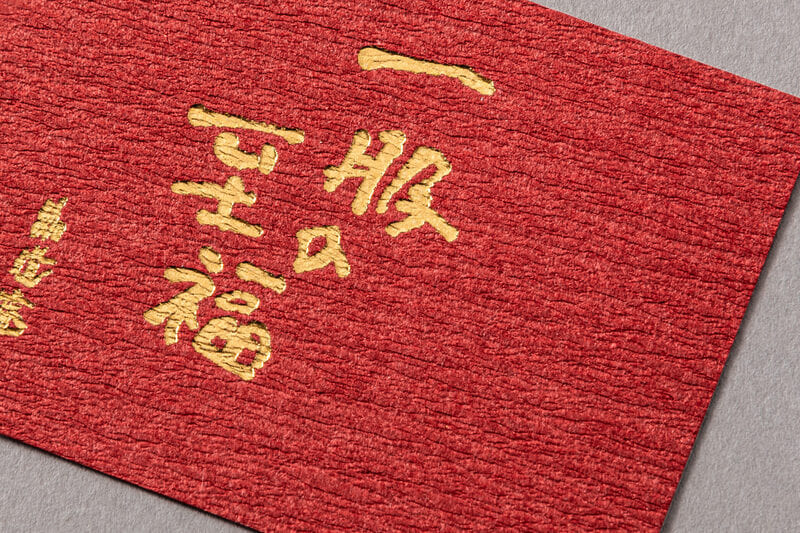 一服の
至福